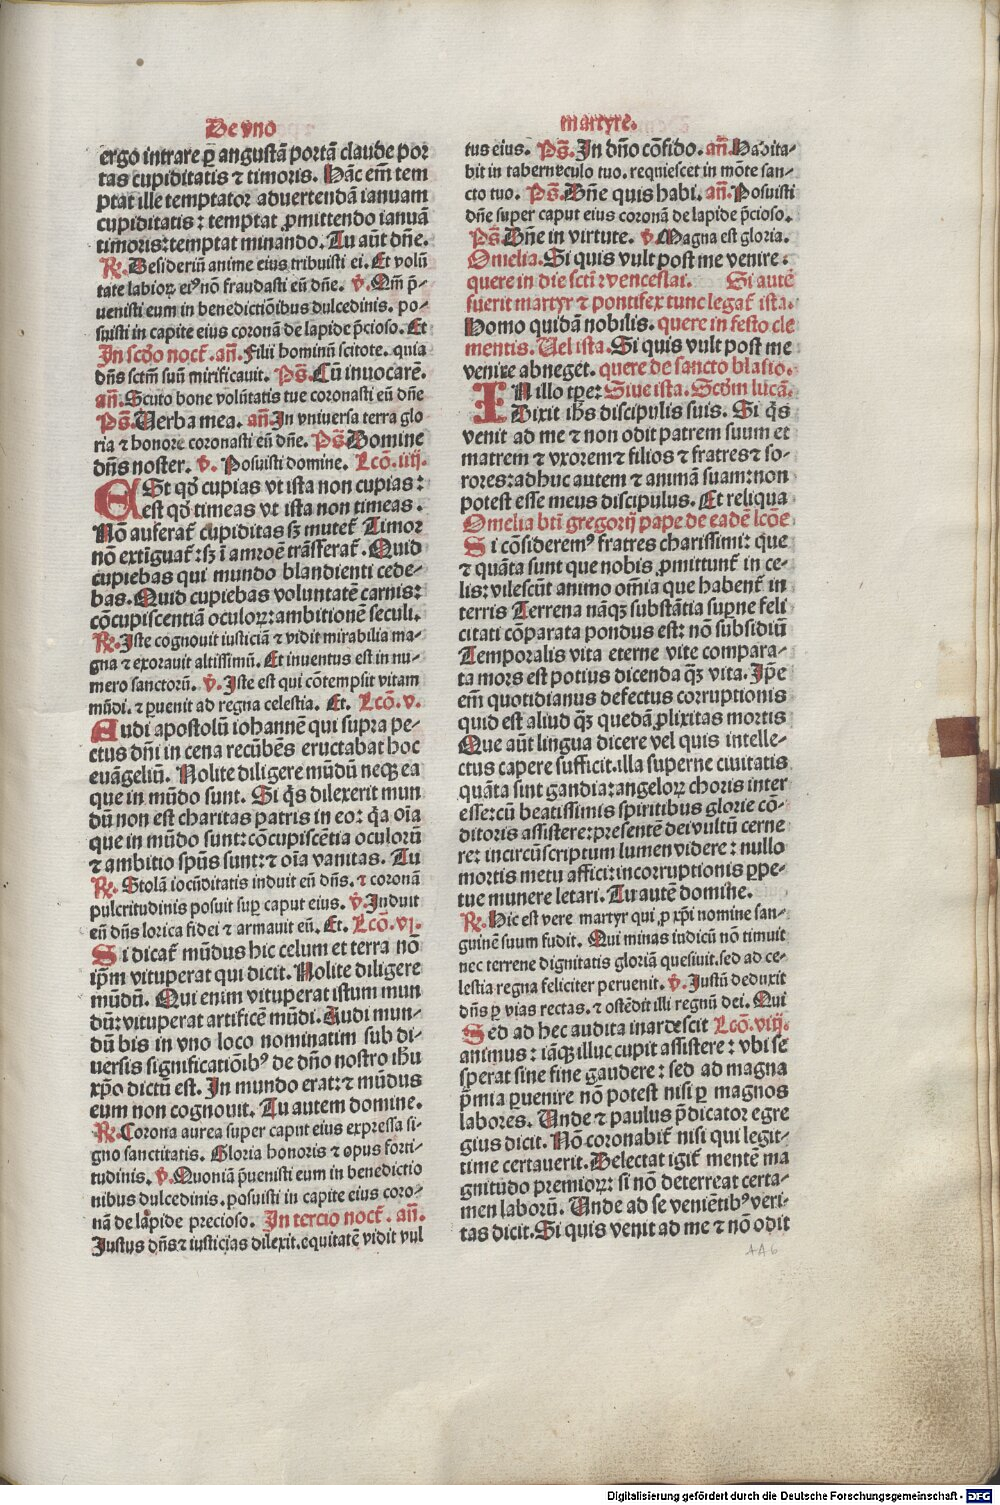 De vno
ergo intrare ꝑ angustā portā claude por
tas cupiditatis ⁊ timoris. Hāc em̄ tem
ptat ille temptator aduertendā ianuam
cupiditatis: temptat ꝓmittendo ianuā
timoris: temptat minando. Tu aūt dn̄e.
℟. Desideriū anime eius tribuisti ei. Et volū
tate labioꝝ eiꝰ nō fraudasti eū dn̄e. ℣. Qm̄ p̄-
uenisti eum in benedictiōibus dulcedinis. po-
suisti in capite eius coronā de lapide p̄cioso. Et
In scd̄o noct̄. an̄. Filii hominū scitote. quia
dn̄s sctm̄ suū mirificauit. Ps̄. Cū inuocarē.
an̄. Scuto bone volūtatis tue coronasti eū dn̄e
Ps̄. Uerba mea. an̄. In vniuersa terra glo
ria ⁊ honore coronasti eū dn̄e. Ps̄. Domine
dn̄s noster. ℣. Posuisti domine. Lcō. iiij.
ESt qd̄ cupias vt ista non cupias:
est qd̄ timeas vt ista non timeas.
Nō auferat̄ cupiditas sꝫ mutet̄ Timor
nō extīguat̄: sꝫ ī amroē trāsferat̄. Quid
cupiebas qui mundo blandienti cede-
bas. Quid cupiebas voluntatē carnis:
cōcupiscentiā oculoꝝ: ambitionē seculi.
℟. Iste cognouit iusticiā ⁊ vidit mirabilia ma-
gna ⁊ exorauit altissimū. Et inuentus est in nu-
mero sanctorū. ℣. Iste est qui cōtempsit vitam
mūdi. ⁊ ꝑuenit ad regna celestia. Et. Lcō. v.
Audi apostolū iohannē qui supra pe-
ctus dn̄i in cena recūbēs eructabat hoc
euāgeliū. Nolite diligere mūdū neqꝫ ea
que in mūdo sunt. Si q̄s dilexerit mun
dū non est charitas patris in eo: q̄a oīa
que in mūdo sunt: cōcupiscētia oculorū
⁊ ambitio spūs sunt: ⁊ oīa vanitas. Tu
℟. Stolā iocūditatis induit eū dn̄s. ⁊ coronā
pulcritudinis posuit suꝑ caput eius. ℣. Induit
eū dn̄s lorica fidei ⁊ armauit eū. Et. Lcō. vj.
Si dicat̄ mūdus hic celum et terra nō
ip̄m vituperat qui dicit. Nolite diligere
mūdū. Qui enim vituperat istum mun
dū: vituperat artificē mūdi. Audi mun-
dū bis in vno loco nominatim sub di-
uersis significatiōibꝰ de dn̄o nostro ihū
xp̄o dictū est. In mundo erat: ⁊ mūdus
eum non cognouit. Tu autem domine.
℟. Corona aurea super caput eius expressa si-
gno sanctitatis. Gloria honoris ⁊ opus forti-
tudinis. ℣. Quoniā p̄uenisti eum in benedictio
nibus dulcedinis. posuisti in capite eius coro-
nā de lapide precioso. In tercio noct̄. an̄.
Justus dn̄s ⁊ iusticias dilexit. equitatē vidit vul
martyre.
tus eius. Ps̄. In dn̄o cōfido. an̄. Habita-
bit in tabernaculo tuo. requiescet in mōte san-
cto tuo. Ps̄. Dn̄e quis habi. an̄. Posuisti
dn̄e super caput eius coronā de lapide p̄cioso.
Ps̄. Dn̄e in virtute. ℣. Magna est gloria.
Omelia. Si quis vult post me venire:
quere in die sct̄i venceslai. Si autē
fuerit martyr ⁊ pontifex tunc legat̄ ista.
Homo quidā nobilis. quere in festo cle
mentis. Uel ista. Si quis vult post me
venire abneget. quere de sancto blasio.
IN illo tp̄e: Siue ista. Scd̄m lucā.
Dixit ihs̄ discipulis suis. Si q̄s
venit ad me ⁊ non odit patrem suum et
matrem ⁊ vxorem ⁊ filios ⁊ fratres ⁊ so-
rores: adhuc autem ⁊ animā suam: non
potest esse meus discipulus. Et reliqua
Omelia bt̄i gregorij pape de eadē lcōe
Si cōsideremꝰ fratres charissimi: que
⁊ quāta sunt que nobis ꝓmittunt̄ in ce-
lis: vilescūt animo om̄ia que habent̄ in
terris Terrena nāqꝫ substātia suꝑne feli
citati cōparata pondus est: nō subsidiū
Temporalis vita eterne vite compara-
ta mors est potius dicenda qꝫ̄ vita. Ip̄e
em̄ quotidianus defectus corruptionis
quid est aliud qꝫ̄ quedā ꝓlixitas mortis
Que aūt lingua dicere vel quis intelle-
ctus capere sufficit. illa superne ciuitatis
quāta sint gandia: angeloꝝ choris inter
esse: cū beatissimis spiritibus glorie cō-
ditoris assistere: presentē dei vultū cerne
re: incircūscriptum lumen videre: nullo
mortis metu affici: incorruptionis ꝑpe-
tue munere letari. Tu autē domine.
℟. Hic est vere martyr qui ꝓ xp̄i nomine san-
guinē suum fudit. Qui minas iudicū nō timuit
nec terrene dignitatis gloriā quesiuit. sed ad ce-
lestia regna feliciter peruenit. ℣. Justū deduxit
dn̄s ꝑ vias rectas. ⁊ ostēdit illi regnū dei. Qui
Sed ad hec audita inardescit Lcō. viij.
animus: iāqꝫ illuc cupit assistere: vbi se
sperat sine fine gaudere: sed ad magna
p̄mia ꝑuenire nō potest nisi ꝑ magnos
labores. Unde ⁊ paulus p̄dicator egre
gius dicit. Nō coronabit̄ nisi qui legit-
time certauerit. Delectat igit̄ mentē ma
gnitudo premioꝝ: si nō deterreat certa-
men laborū. Unde ad se veniētibꝰ veri-
tas dicit. Si quis venit ad me ⁊ nō odit
AA6
Digitalisierung gefördert durch die Deutsche Forschungsgemeinschaft - DFG